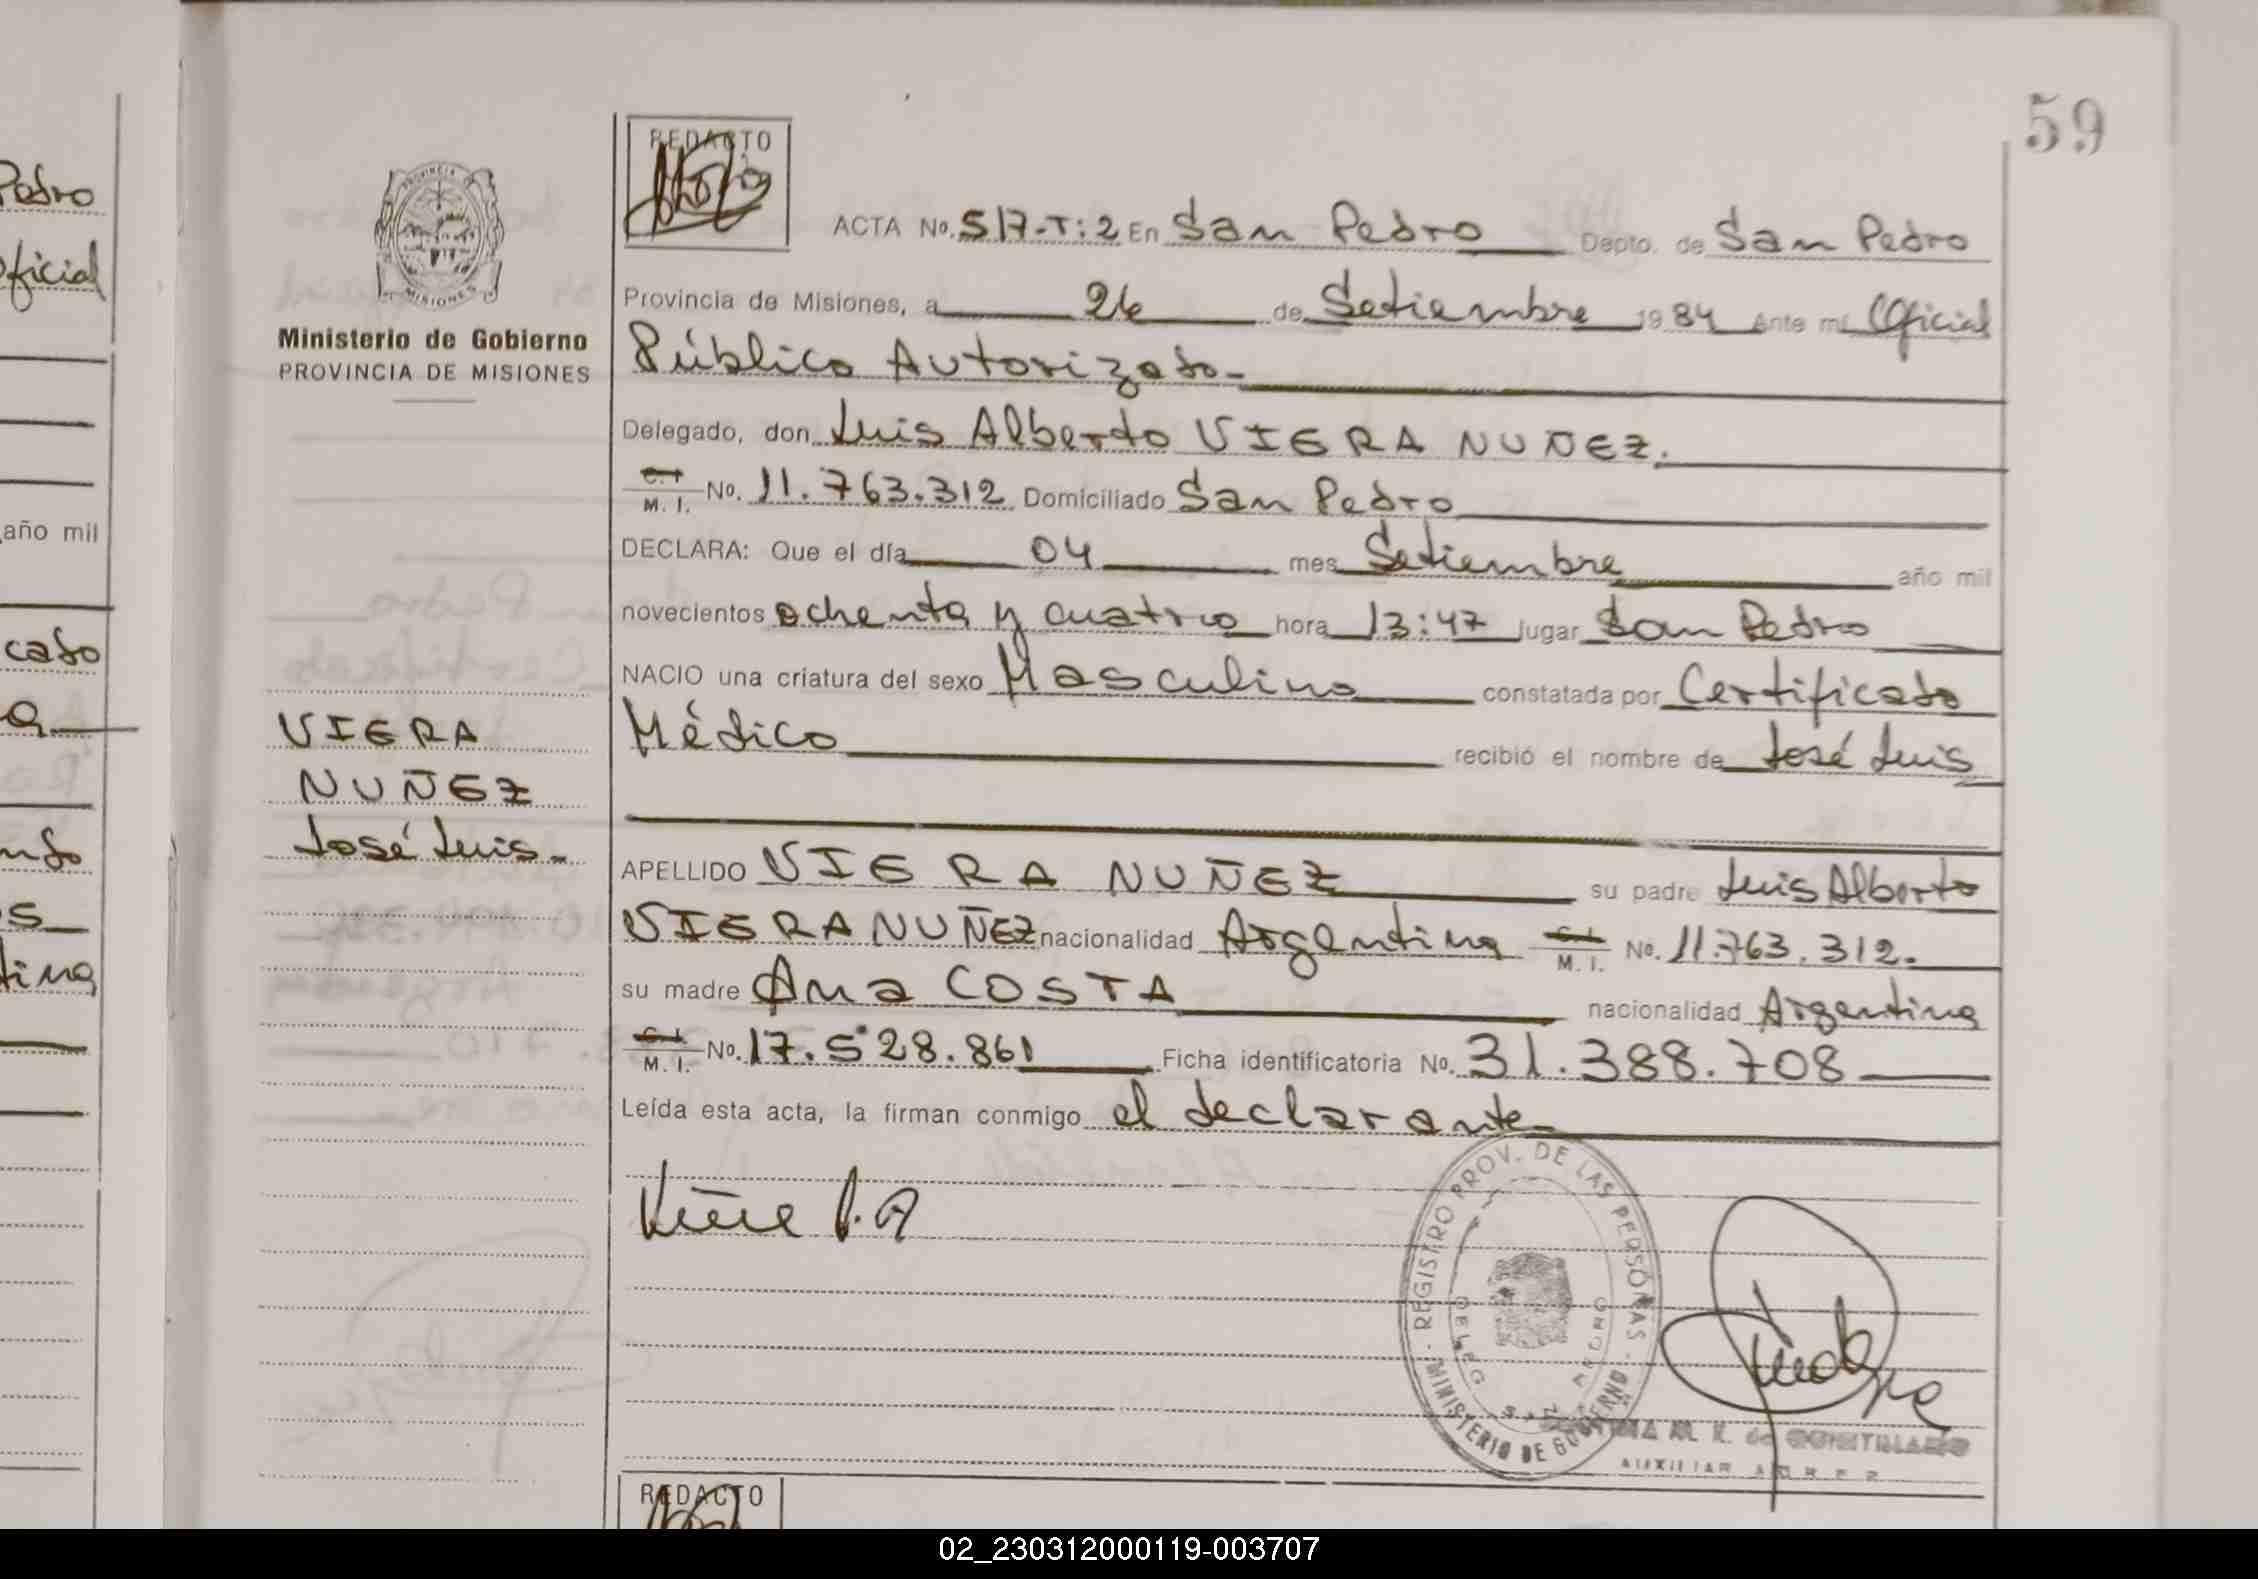 59
REDACTO
ACTA No. 517-T:2 En San Pedro Depto. de San Pedro
PROVINCIA
MISIONES
Ministerio de Gobierno
PROVINCIA DE MISIONES
Provincia de Misiones, a 26 de Setiembre 1984 Ante mí Oficial
Público Autorizado-
Delegado, don Luis Alberto VIERA NUÑEZ.
C.I M. I. No. 11.763.312 Domiciliado San Pedro
DECLARA: Que el día 04 mes Setiembre año mil
novecientos ochenta y cuatro hora 13:47 lugar San Pedro
NACIO una criatura del sexo Masculino constatada por Certificado
Médico recibió el nombre de José Luis
VIERA
NUÑEZ
José Luis-
APELLIDO VIERA NUÑEZ su padre Luis Alberto
VIERA NUÑEZ nacionalidad Argentina C.I M. I. No. 11.763.312.
su madre Ana COSTA nacionalidad Argentina
C.I M. I. No. 17.528.861 Ficha identificatoria No. 31.388.708
Leída esta acta, la firman conmigo el declarante-
REGISTRO PROV. DE LAS PERSONAS - MINISTERIO DE GOBIERNO -
M. K. de QUINTILLANO
AUXILIAR
REDACTO
Pedro
Oficial
año mil
cado
a
ndo
s
tina
02_230312000119-003707